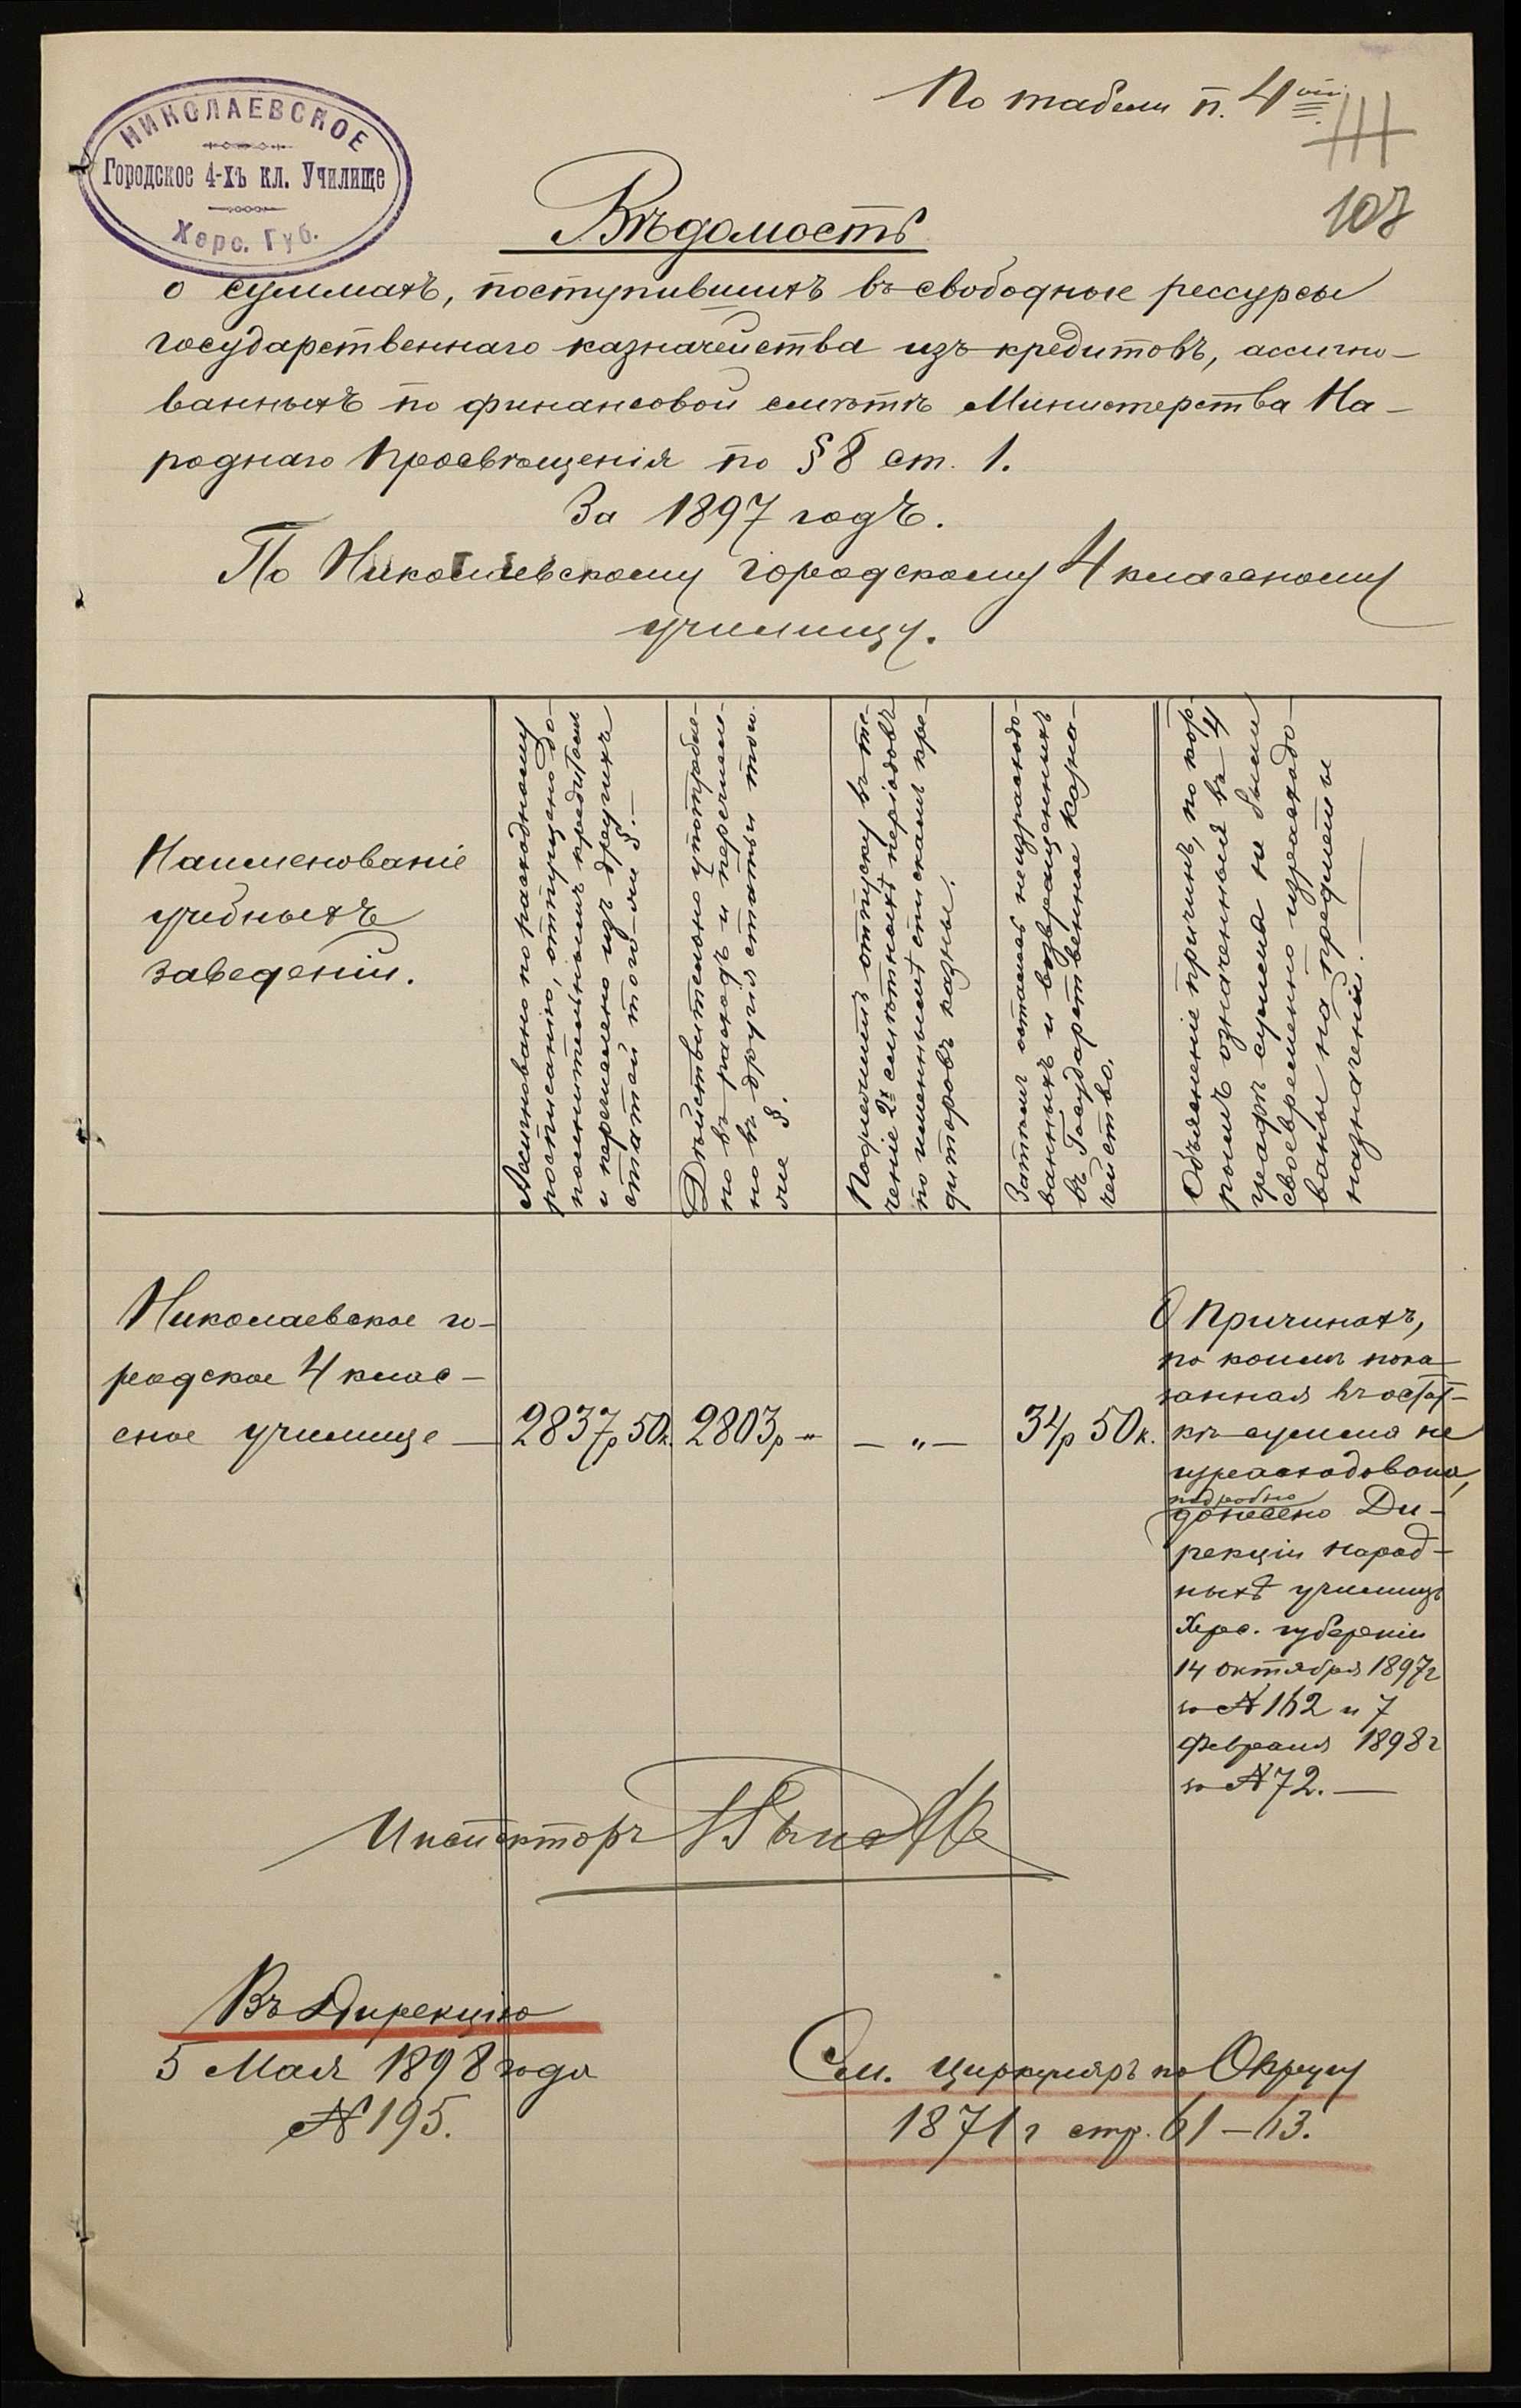 По табели п. 4ой
НИКОЛАЕВСКОЕ
Городское 4-хъ кл. Училище
Херс. Губ.
107
Вѣдомость
о суммахъ, поступившихъ въ свободные рессурсы
государственнаго казначейства изъ кредитовъ, ассигно-
ванныхъ по финансовой смѣтѣ Министерства На-
роднаго Просвѣщенія по § 8 ст. 1.
За 1897 годъ.
По Николаевскому городскому 4 классному
училищу.
Наименованіе
учебныхъ
заведеній.
Ассигновано по расходному
росписанію, отпущено до-
полнительнымъ кредитомъ
и перечислено изъ другихъ
статей того-же §.—
Дѣйствительно употребле-
но въ расходъ и перечисле-
но въ другія статьи того-
же §.
Подлежитъ отпуску въ те-
ченіе 2х смѣтныхъ періодовъ
по именнымъ спискамъ кре-
диторовъ казны.
Затѣмъ осталось неизрасходо-
ванныхъ и возвращенныхъ
въ Государственное Казна-
чейство.
Объясненіе причинъ, по кото-
рымъ означенныя въ 4
графѣ суммы не были
своевременно израсходо-
ваны на предметы
назначенія.—
Николаевское го-
родское 4 клас-
сное училище —
2837р 50к.
2803р —"
— „ —
34р 50к.
О причинахъ,
по коимъ пока-
занная въ остат-
кѣ сумма не
израсходована,
подробно
донесено Ди-
рекціи народ-
ныхъ училищъ
Херс. губерніи
14 октября 1897г
за № 162 и 7
февраля 1898г
за № 72.—
Инспекторъ
Въ Дирекцію
5 Мая 1898 года
№ 195.
См. циркуляръ по Округу
1871 г стр. 61—63.